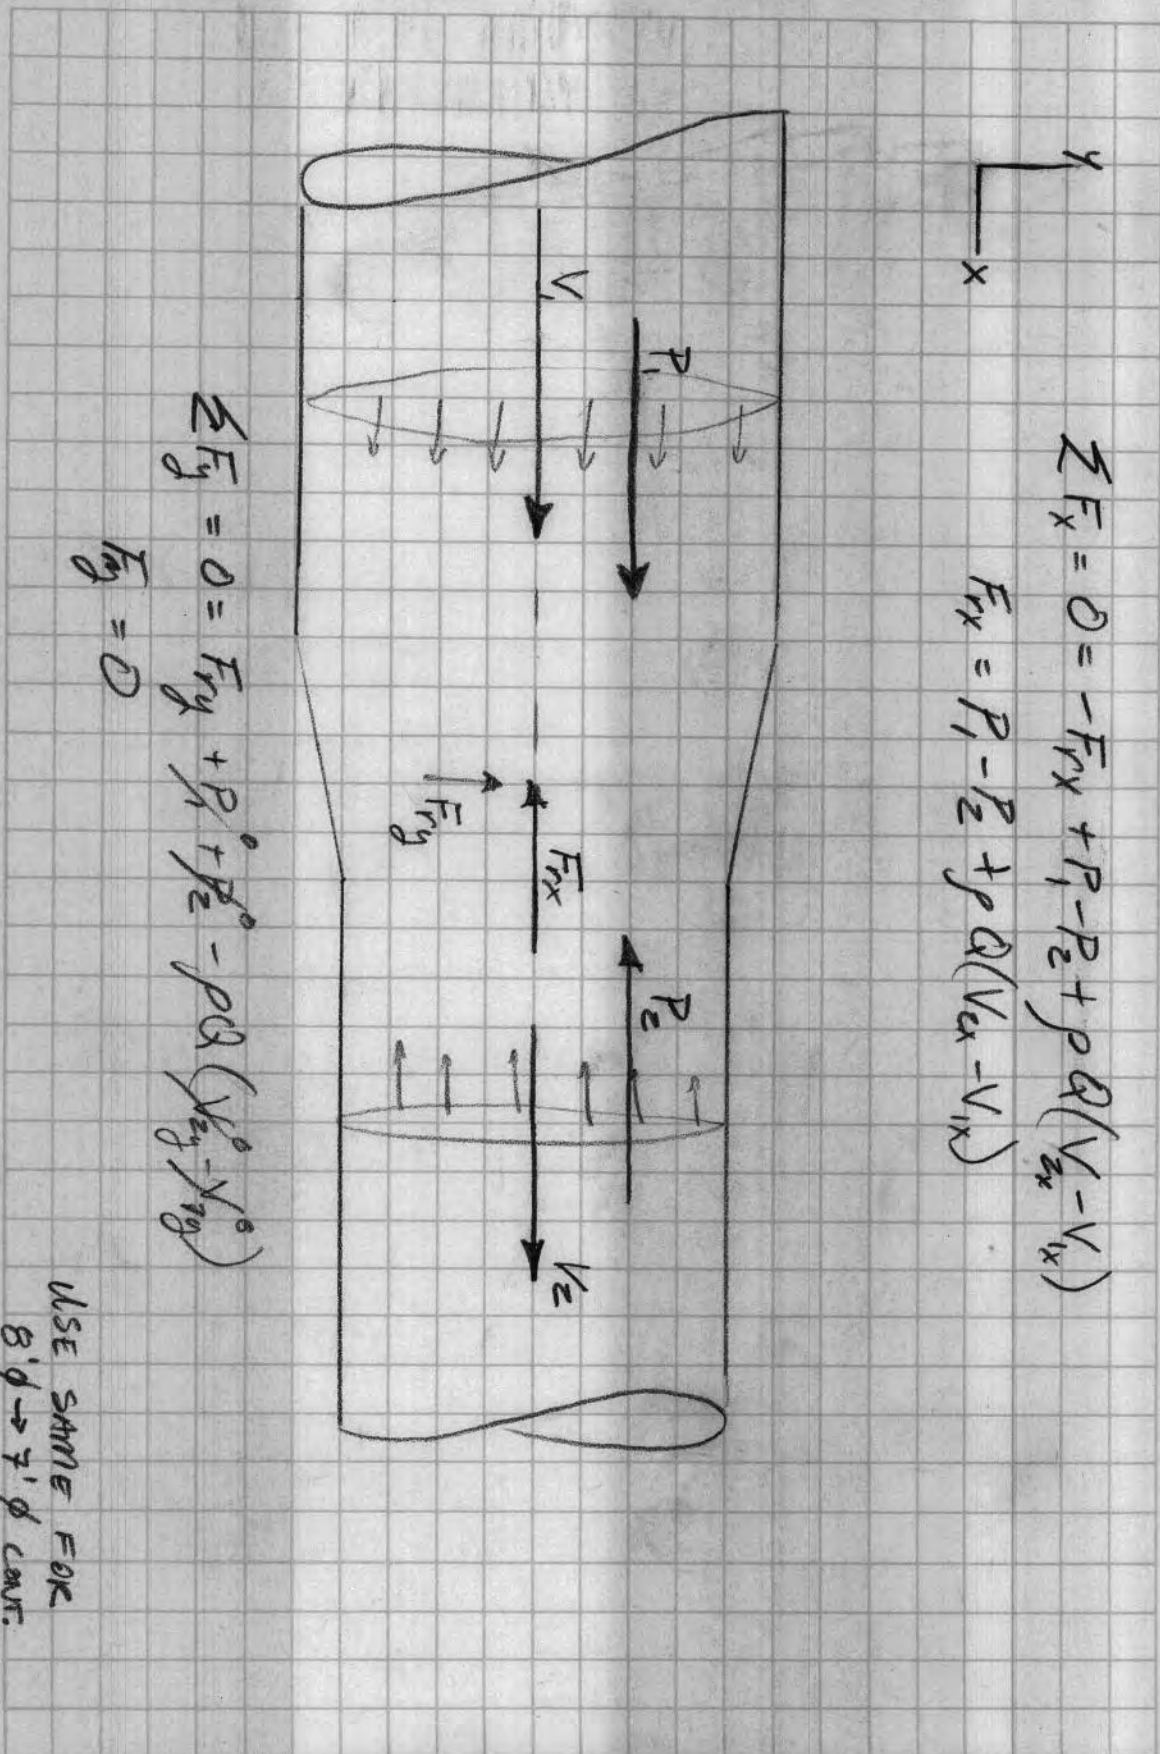 y
x
ΣFx = 0 = -Frx + P1 - P2 + ρQ(V2x - V1x)
Frx = P1 - P2 + ρQ(V2x - V1x)
P1
V1
P2
V2
Frx
Fry
ΣFy = 0 = Fry + P1⁰ + P2⁰ - ρQ(V2y⁰ - V1y⁰)
Fry = 0
USE SAME FOR
8'ϕ → 7'ϕ CONT.